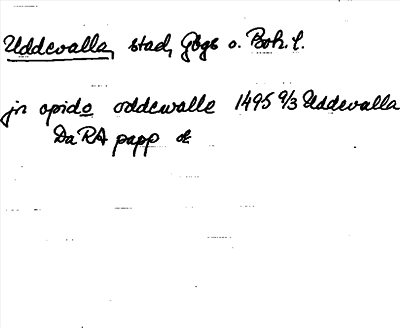 Uddevalla, stad, Gbgs o. Boh. l.
jn opido oddewalle 1495 9/3 Uddevalla
DaRA papp or